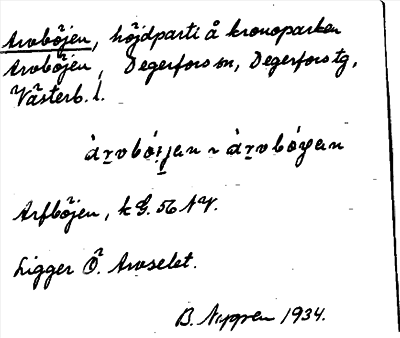 Arvböjen, höjdparti å kronoparken
Arvböjen, Degerfors sn, Degerfors tg,
Västerb. l.
àrvbói̯jan ~ àrvbóyan
Arfböjen, kG. 56 NV.
Ligger Ö. Arvselet.
B. Nygren 1934.